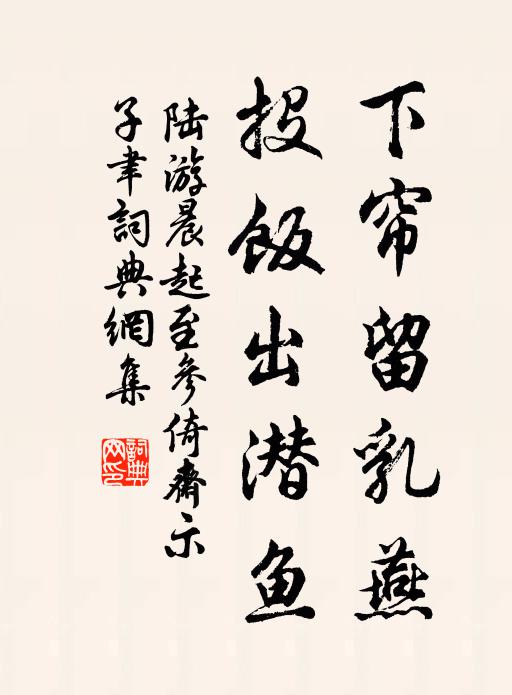 下帘留乳燕
投饭出潜鱼
陆游晨起至参倚斋示
子聿詞典網集
詞典網印